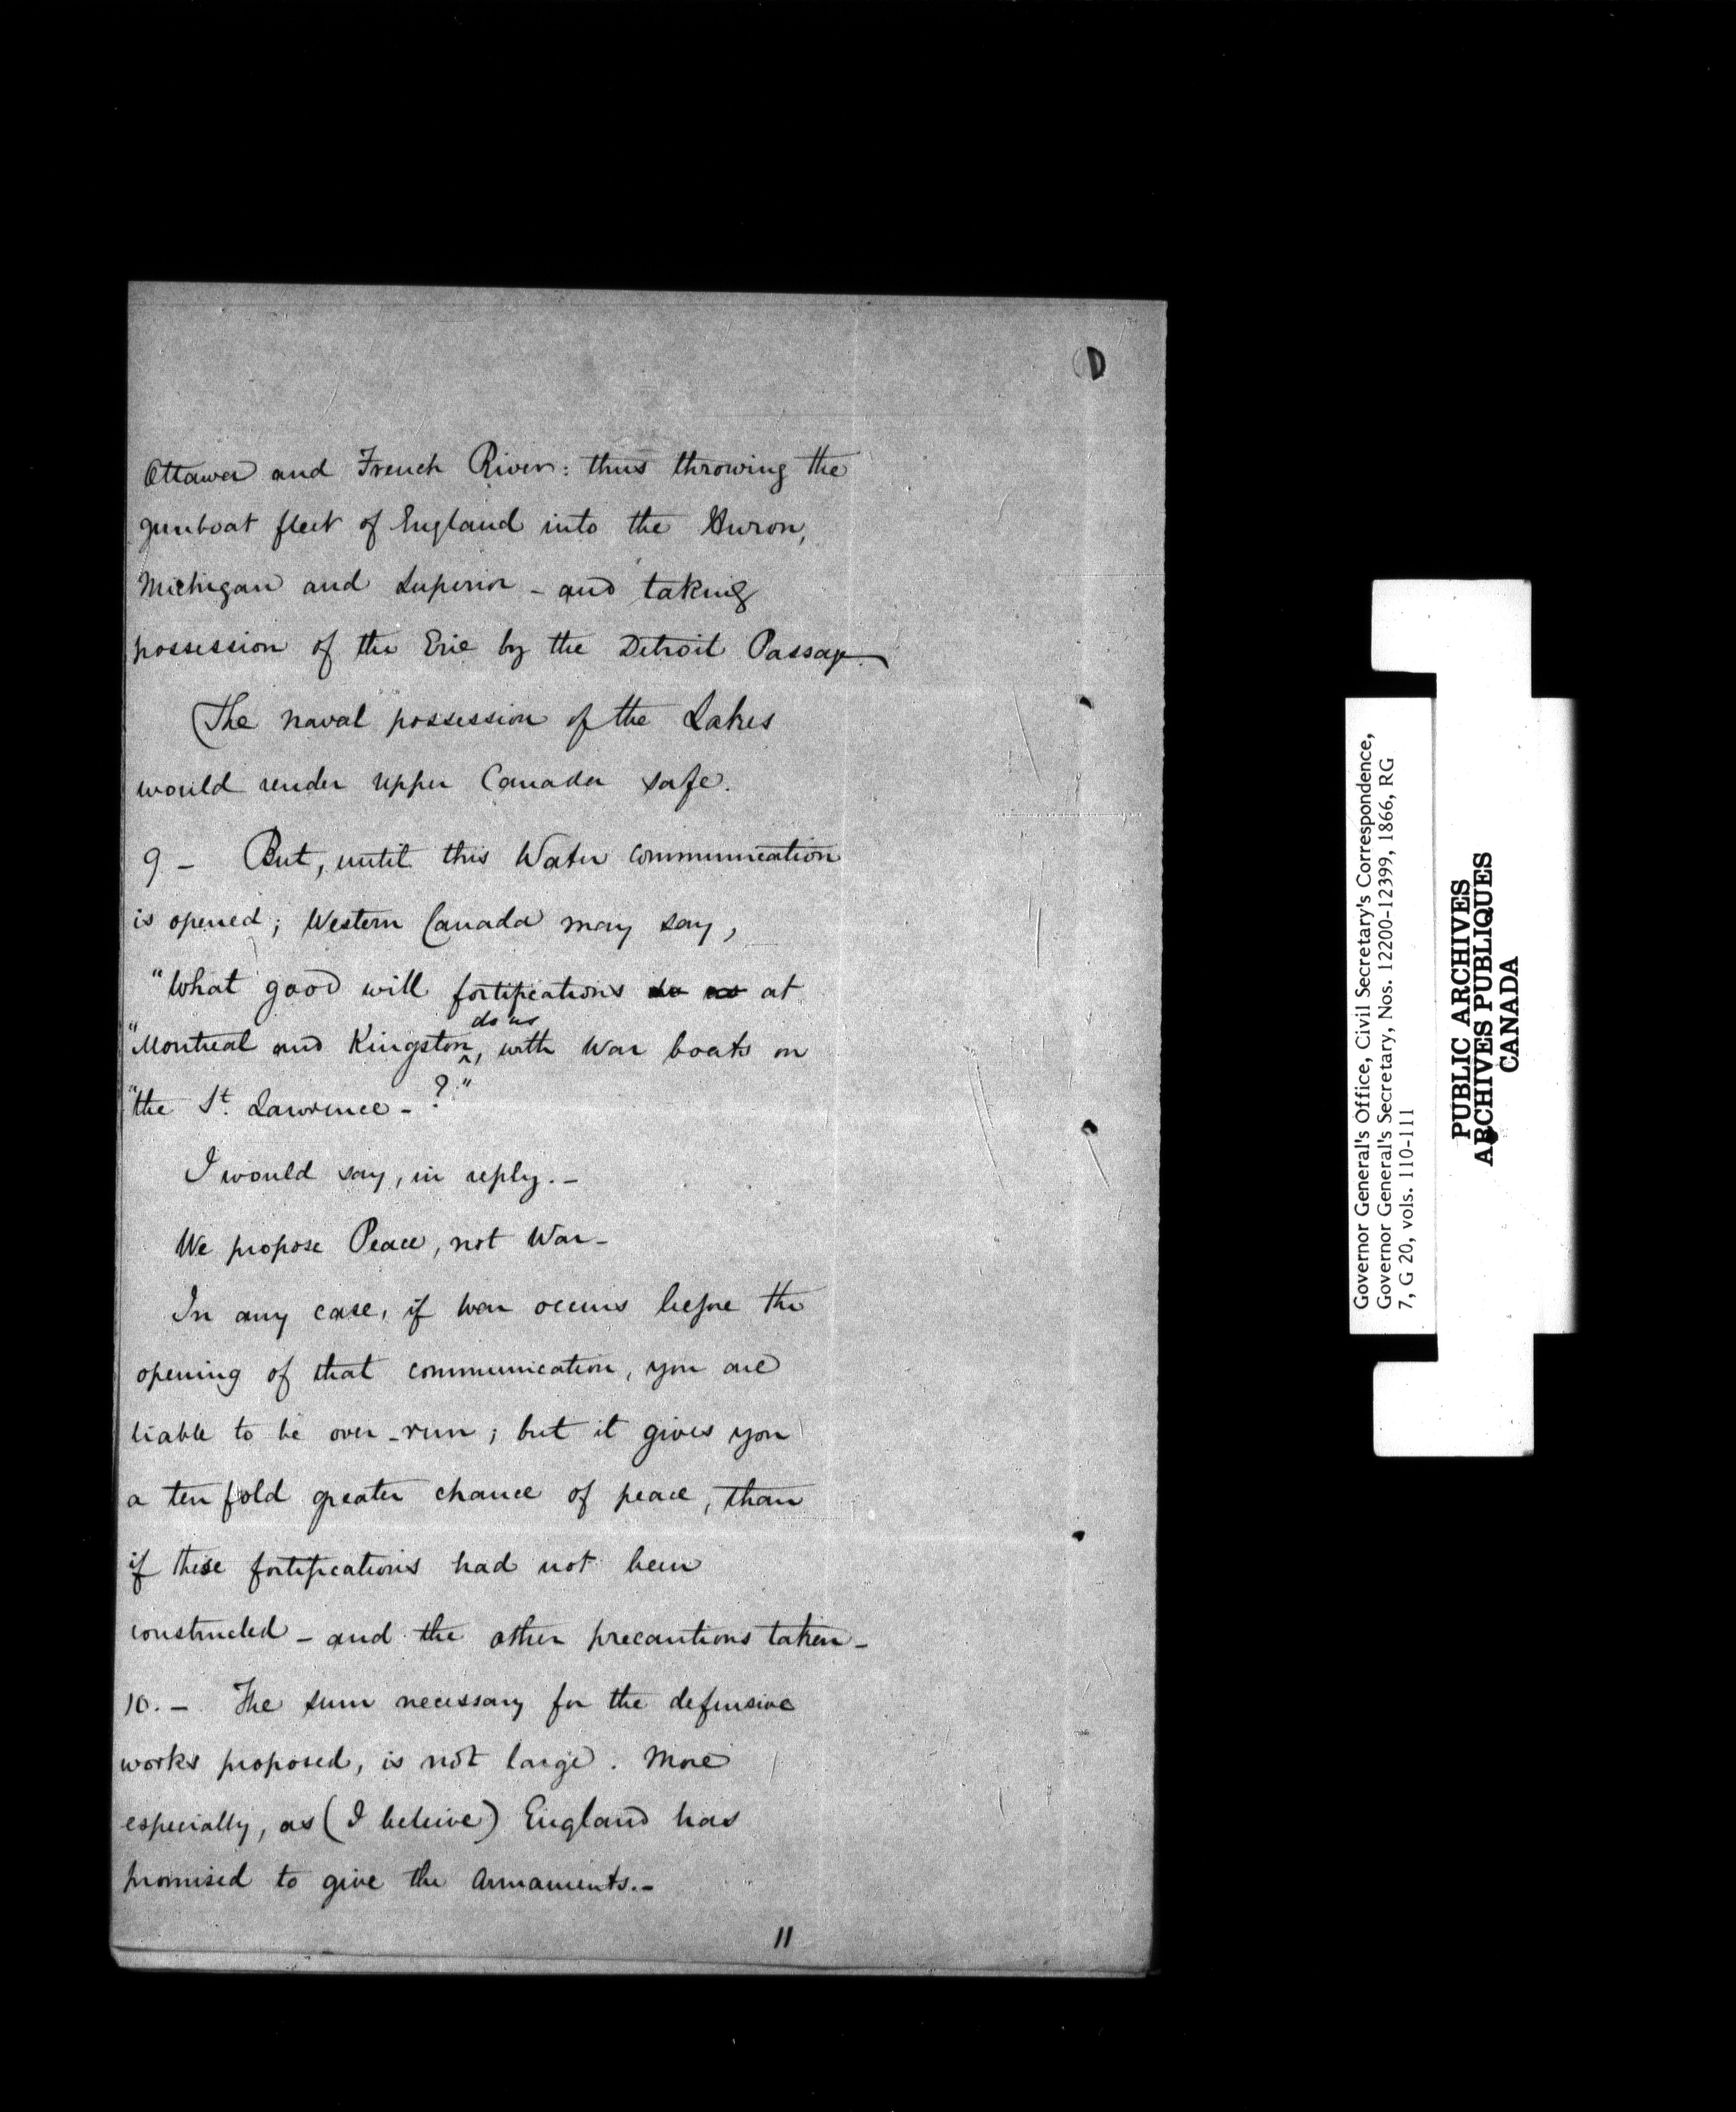 Ottawa and French River: thus throwing the
gunboat fleet of England into the Huron,
Michigan and Superior - and taking
possession of the Erie by the Detroit Passage.
The naval possession of the Lakes
would render Upper Canada safe.
9 - But, until this Water communication
is opened; Western Canada may say,
"What good will fortifications do us at
do us
"Montreal and Kingston ^, with War boats on
"the St. Lawrence - ?"
I would say, in reply. -
We propose Peace, not War -
In any case, if war occurs before the
opening of that communication, you are
liable to be over-run; but it gives you
a ten fold greater chance of peace, than
if these fortifications had not been
constructed - and the other precautions taken -
10. - The sum necessary for the defensive
works proposed, is not large. More
especially, as (I beleive) England has
promised to give the Armaments. -
11
Governor General's Office, Civil Secretary's Correspondence,
Governor General's Secretary, Nos. 12200-12399, 1866, RG
7, G 20, vols. 110-111
PUBLIC ARCHIVES
ARCHIVES PUBLIQUES
CANADA